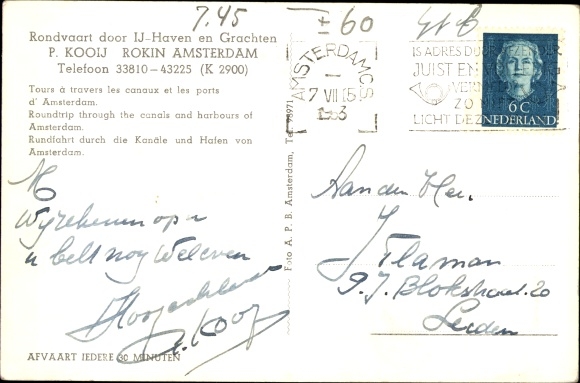 7.45
± 60
Rondvaart door IJ-Haven en Grachten
P. KOOIJ ROKIN AMSTERDAM
Telefoon 33810-43225 (K 2900)
Tours à travers les canaux et les ports
d' Amsterdam.
Roundtrip through the canals and harbours of
Amsterdam.
Rundfahrt durch die Kanäle und Hafen von
Amsterdam.
M
Wij rekenen op u
u belt nog Weleven
P. Kooy
AFVAART IEDERE 30 MINUTEN
Foto A. P. B. Amsterdam, Tel.
AMSTERDAM CS
7 VII 15
1953
IS ADRES
JUIST EN
LICHT
6 C
NEDERLAND
Aan den Heer
J Flaman
P. J. Blokstraat 20
Leiden